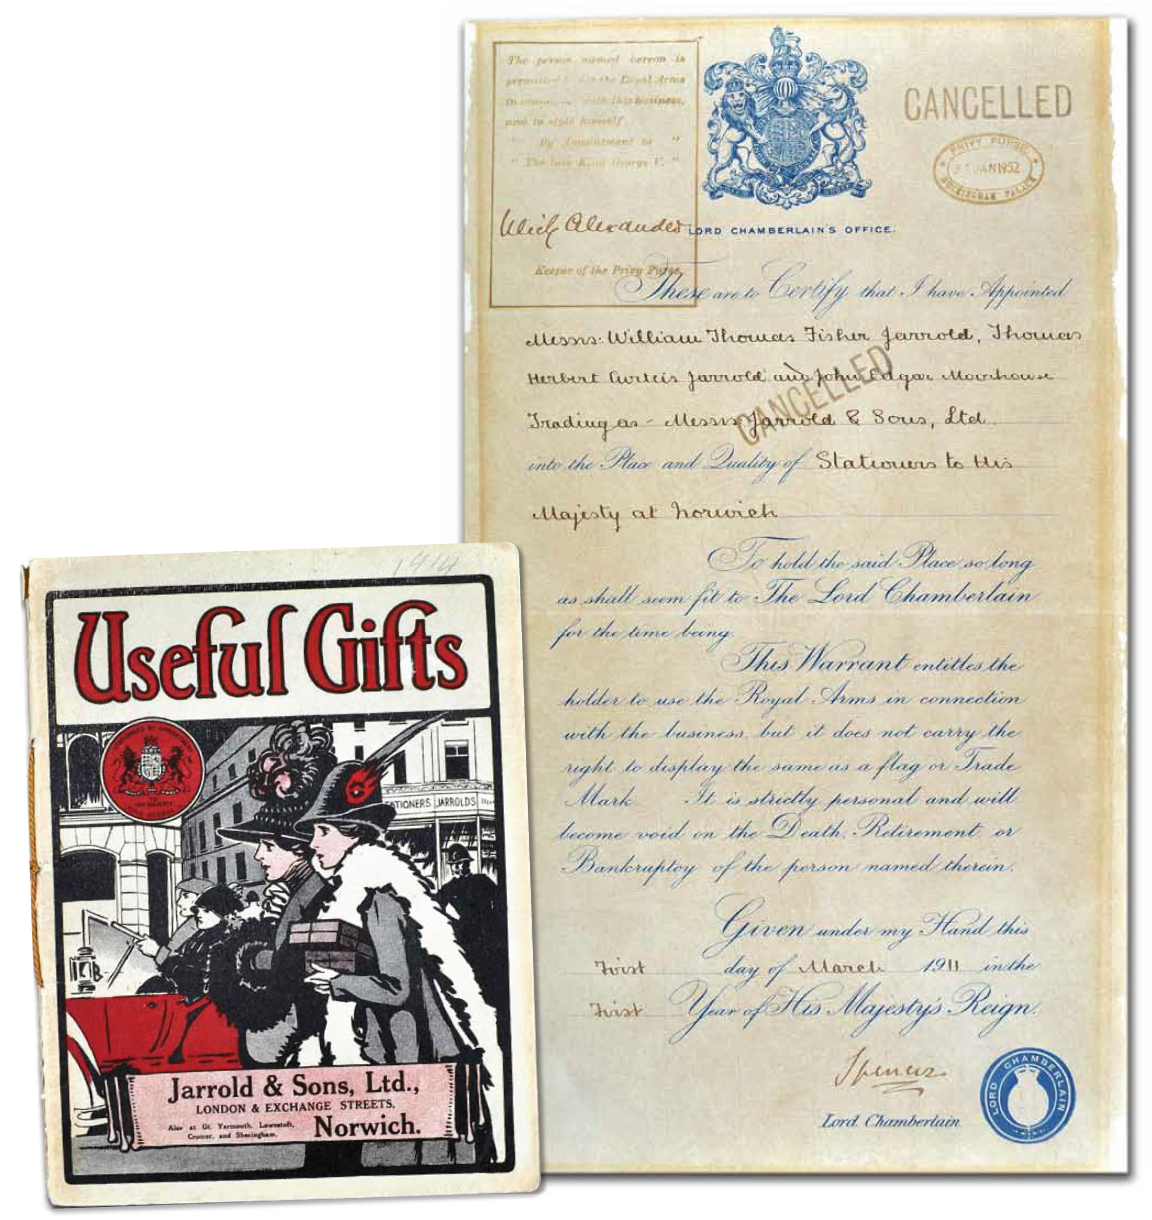 The person named herein is
permitted to use the Royal Arms
in connection with this business,
and to style himself
" By Appointment to "
" The late King George V. "
Ulick Alexander
Keeper of the Privy Purse.
CANCELLED
PRIVY PURSE
JAN 1952
BUCKINGHAM PALACE
LORD CHAMBERLAIN'S OFFICE.
These are to Certify that I have Appointed
Messrs: William Thomas Fisher Jarrold, Thomas
Herbert Curteis Jarrold and John Edgar Moorhouse
CANCELLED
Trading as - Messrs Jarrold & Sons, Ltd.
into the Place and Quality of Stationers to His
Majesty at Norwich
To hold the said Place so long
as shall seem fit to The Lord Chamberlain
for the time being.
This Warrant entitles the
holder to use the Royal Arms in connection
with the business, but it does not carry the
right to display the same as a flag or Trade
Mark. It is strictly personal and will
become void on the Death, Retirement or
Bankruptcy of the person named therein.
Given under my Hand this
First day of March 1911 in the
First Year of His Majesty's Reign.
Spencer
Lord Chamberlain
LORD CHAMBERLAIN
1914
Useful Gifts
STATIONERS JARROLDS
Jarrold & Sons, Ltd.,
LONDON & EXCHANGE STREETS,
Also at Gt. Yarmouth, Lowestoft,
Cromer, and Sheringham.
Norwich.